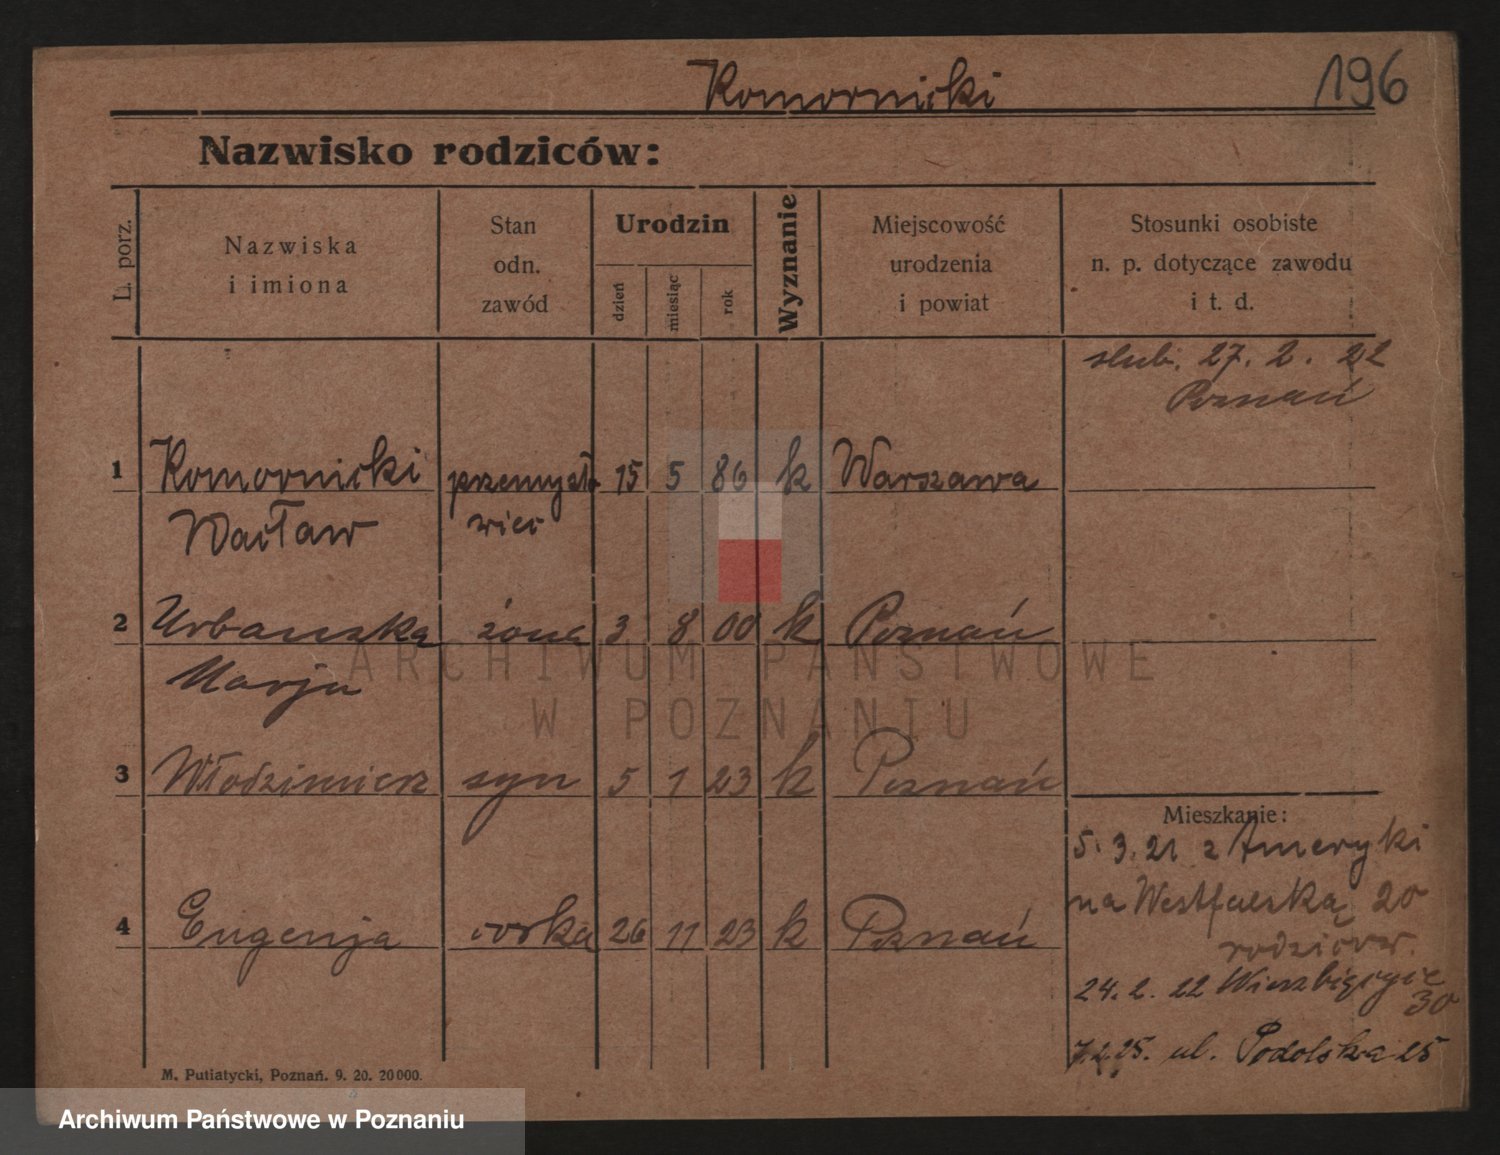 Komornicki 196
Nazwisko rodziców:
L. porz.
Nazwiska
i imiona
Stan
odn.
zawód
Urodzin
dzień
miesiąc
rok
Wyznanie
Miejscowość
urodzenia
i powiat
Stosunki osobiste
n. p. dotyczące zawodu
i t. d.
ślub. 27. 2. 22
Poznań
1 Komornicki przemysło 15 5 86 k Warszawa
Wacław wiec
2 Urbańska żona 3 8 00 k Poznań
Marja
3 Włodzimierz syn 5 1 23 k Poznań
4 Eugenja córka 26 11 23 k Poznań
Mieszkanie:
5. 3. 21 z Ameryki
na Westfalską 20
rodziców.
24. 2. 22 Wierzbięcice
30
7.2.25. ul. Podolska 25
M. Putiatycki, Poznań. 9. 20. 20000.
ARCHIWUM PAŃSTWOWE
W POZNANIU
Archiwum Państwowe w Poznaniu